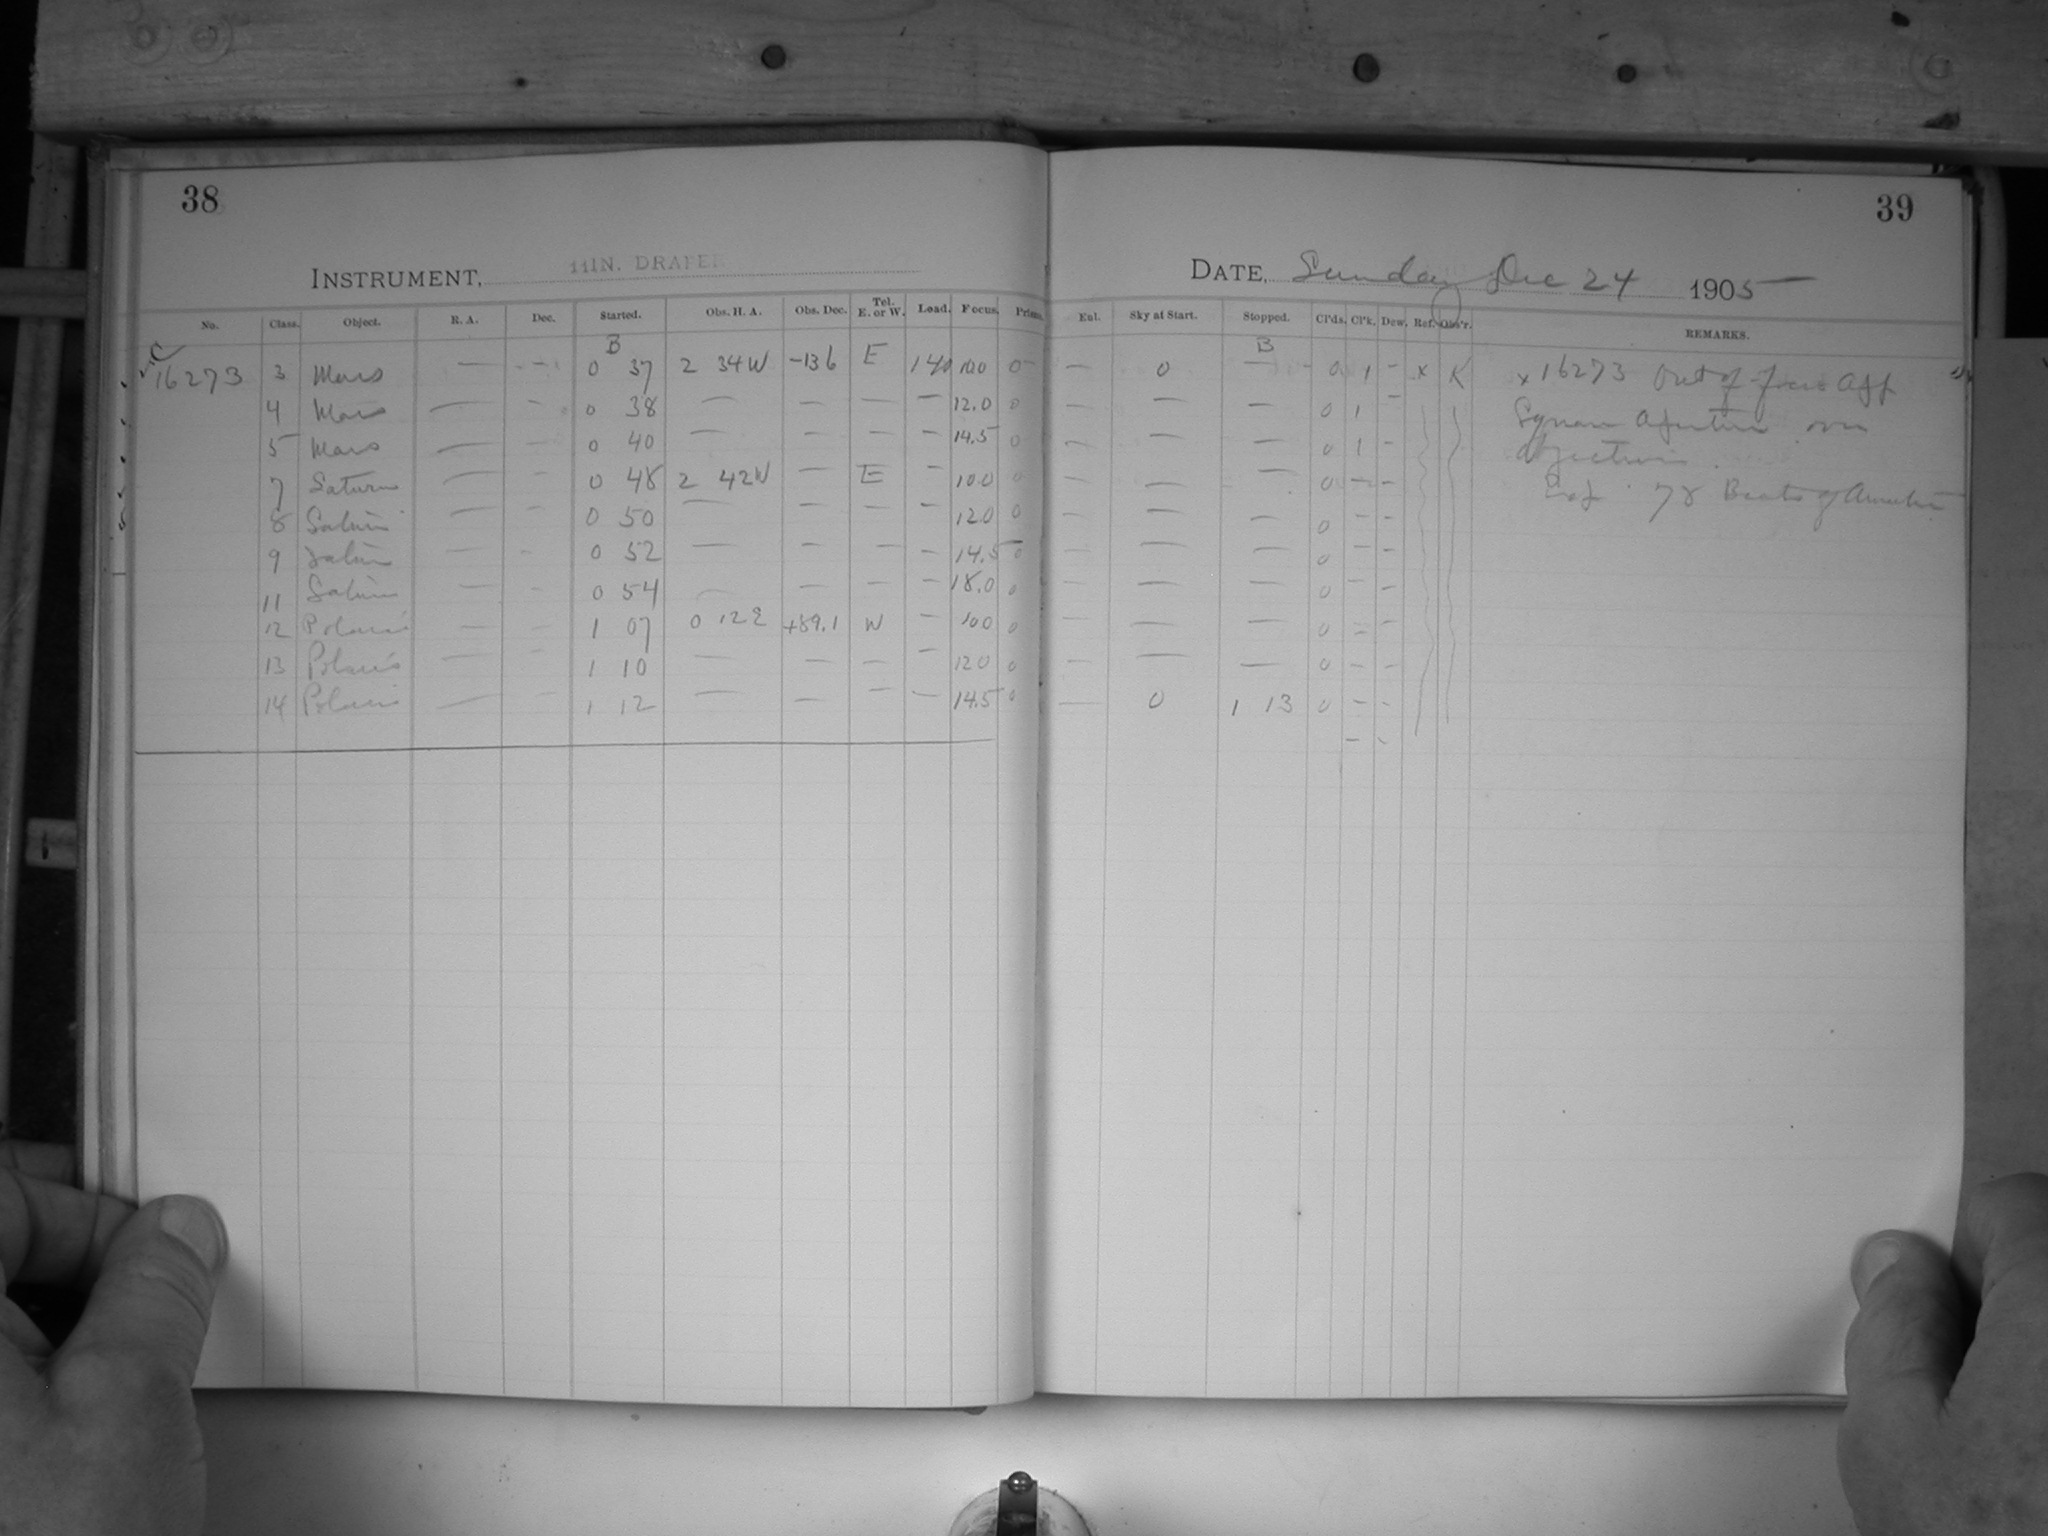 38
INSTRUMENT, 11IN. DRAPER
No. Class. Object. R. A. Dec. Started. Obs. H. A. Obs. Dec. Tel. E. or W. Load. Focus. Prism.
B
C
16273 3 Mars — — 0 37 2 34W -136 E 140 100 0
4 Mars — — 0 38 — — — — 12.0 0
5 Mars — — 0 40 — — — — 14.5 0
7 Saturn — — 0 48 2 42W — E — 10.0 0
8 Saturn — — 0 50 — — — — 12.0 0
9 Saturn — — 0 52 — — — — 14.5 0
11 Saturn — — 0 54 — — — — 18.0 0
12 Polaris — — 1 07 0 12E +89.1 W — 100 0
13 Polaris — — 1 10 — — — — 120 0
14 Polaris — — 1 12 — — — — 14.5 0
39
DATE, Sunday Dec 24 1905
Eul. Sky at Start. Stopped. Cl'ds. Cl'k. Dew. Ref. Obs'r. REMARKS.
B
— 0 — 0 1 - x K x 16273 Out of focus
— — — 0 1 - Square Aperture over
— — — 0 1 - objective
— — — 0 - - 78 Beats of
— — — 0 - -
— — — 0 - -
— — — 0 - -
— — — 0 - -
— — — 0 - -
— 0 1 13 0 - -
- -